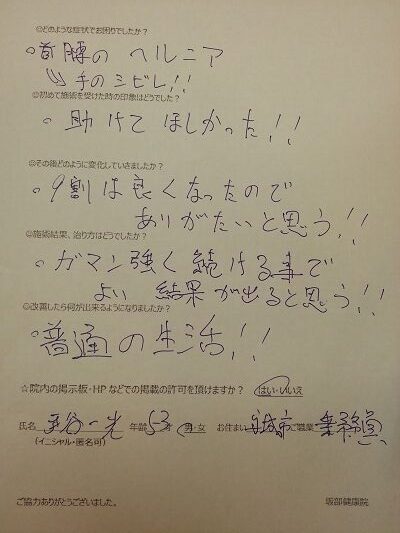 ◎どのような症状でお困りでしたか？
○首腰の ヘルニア
↳手のシビレ!!
◎初めて施術を受けた時の印象はどうでした？
○助けて ほしかった!!
◎その後どのように変化していきましたか？
○9割は良くなったので
ありがたいと思う!!
◎施術結果、治り方はどうでしたか？
○ガマン強く続ける事で
よい 結果が出ると思う!!
◎改善したら何が出来るようになりましたか？
○普通の生活!!
☆院内の掲示板・HPなどでの掲載の許可を頂けますか？ はい・いいえ
氏名 一光 年齢 53才 男・女 お住まい 市 ご職業 業務員
(イニシャル・匿名可)
ご協力ありがとうございました。 阪部健康院